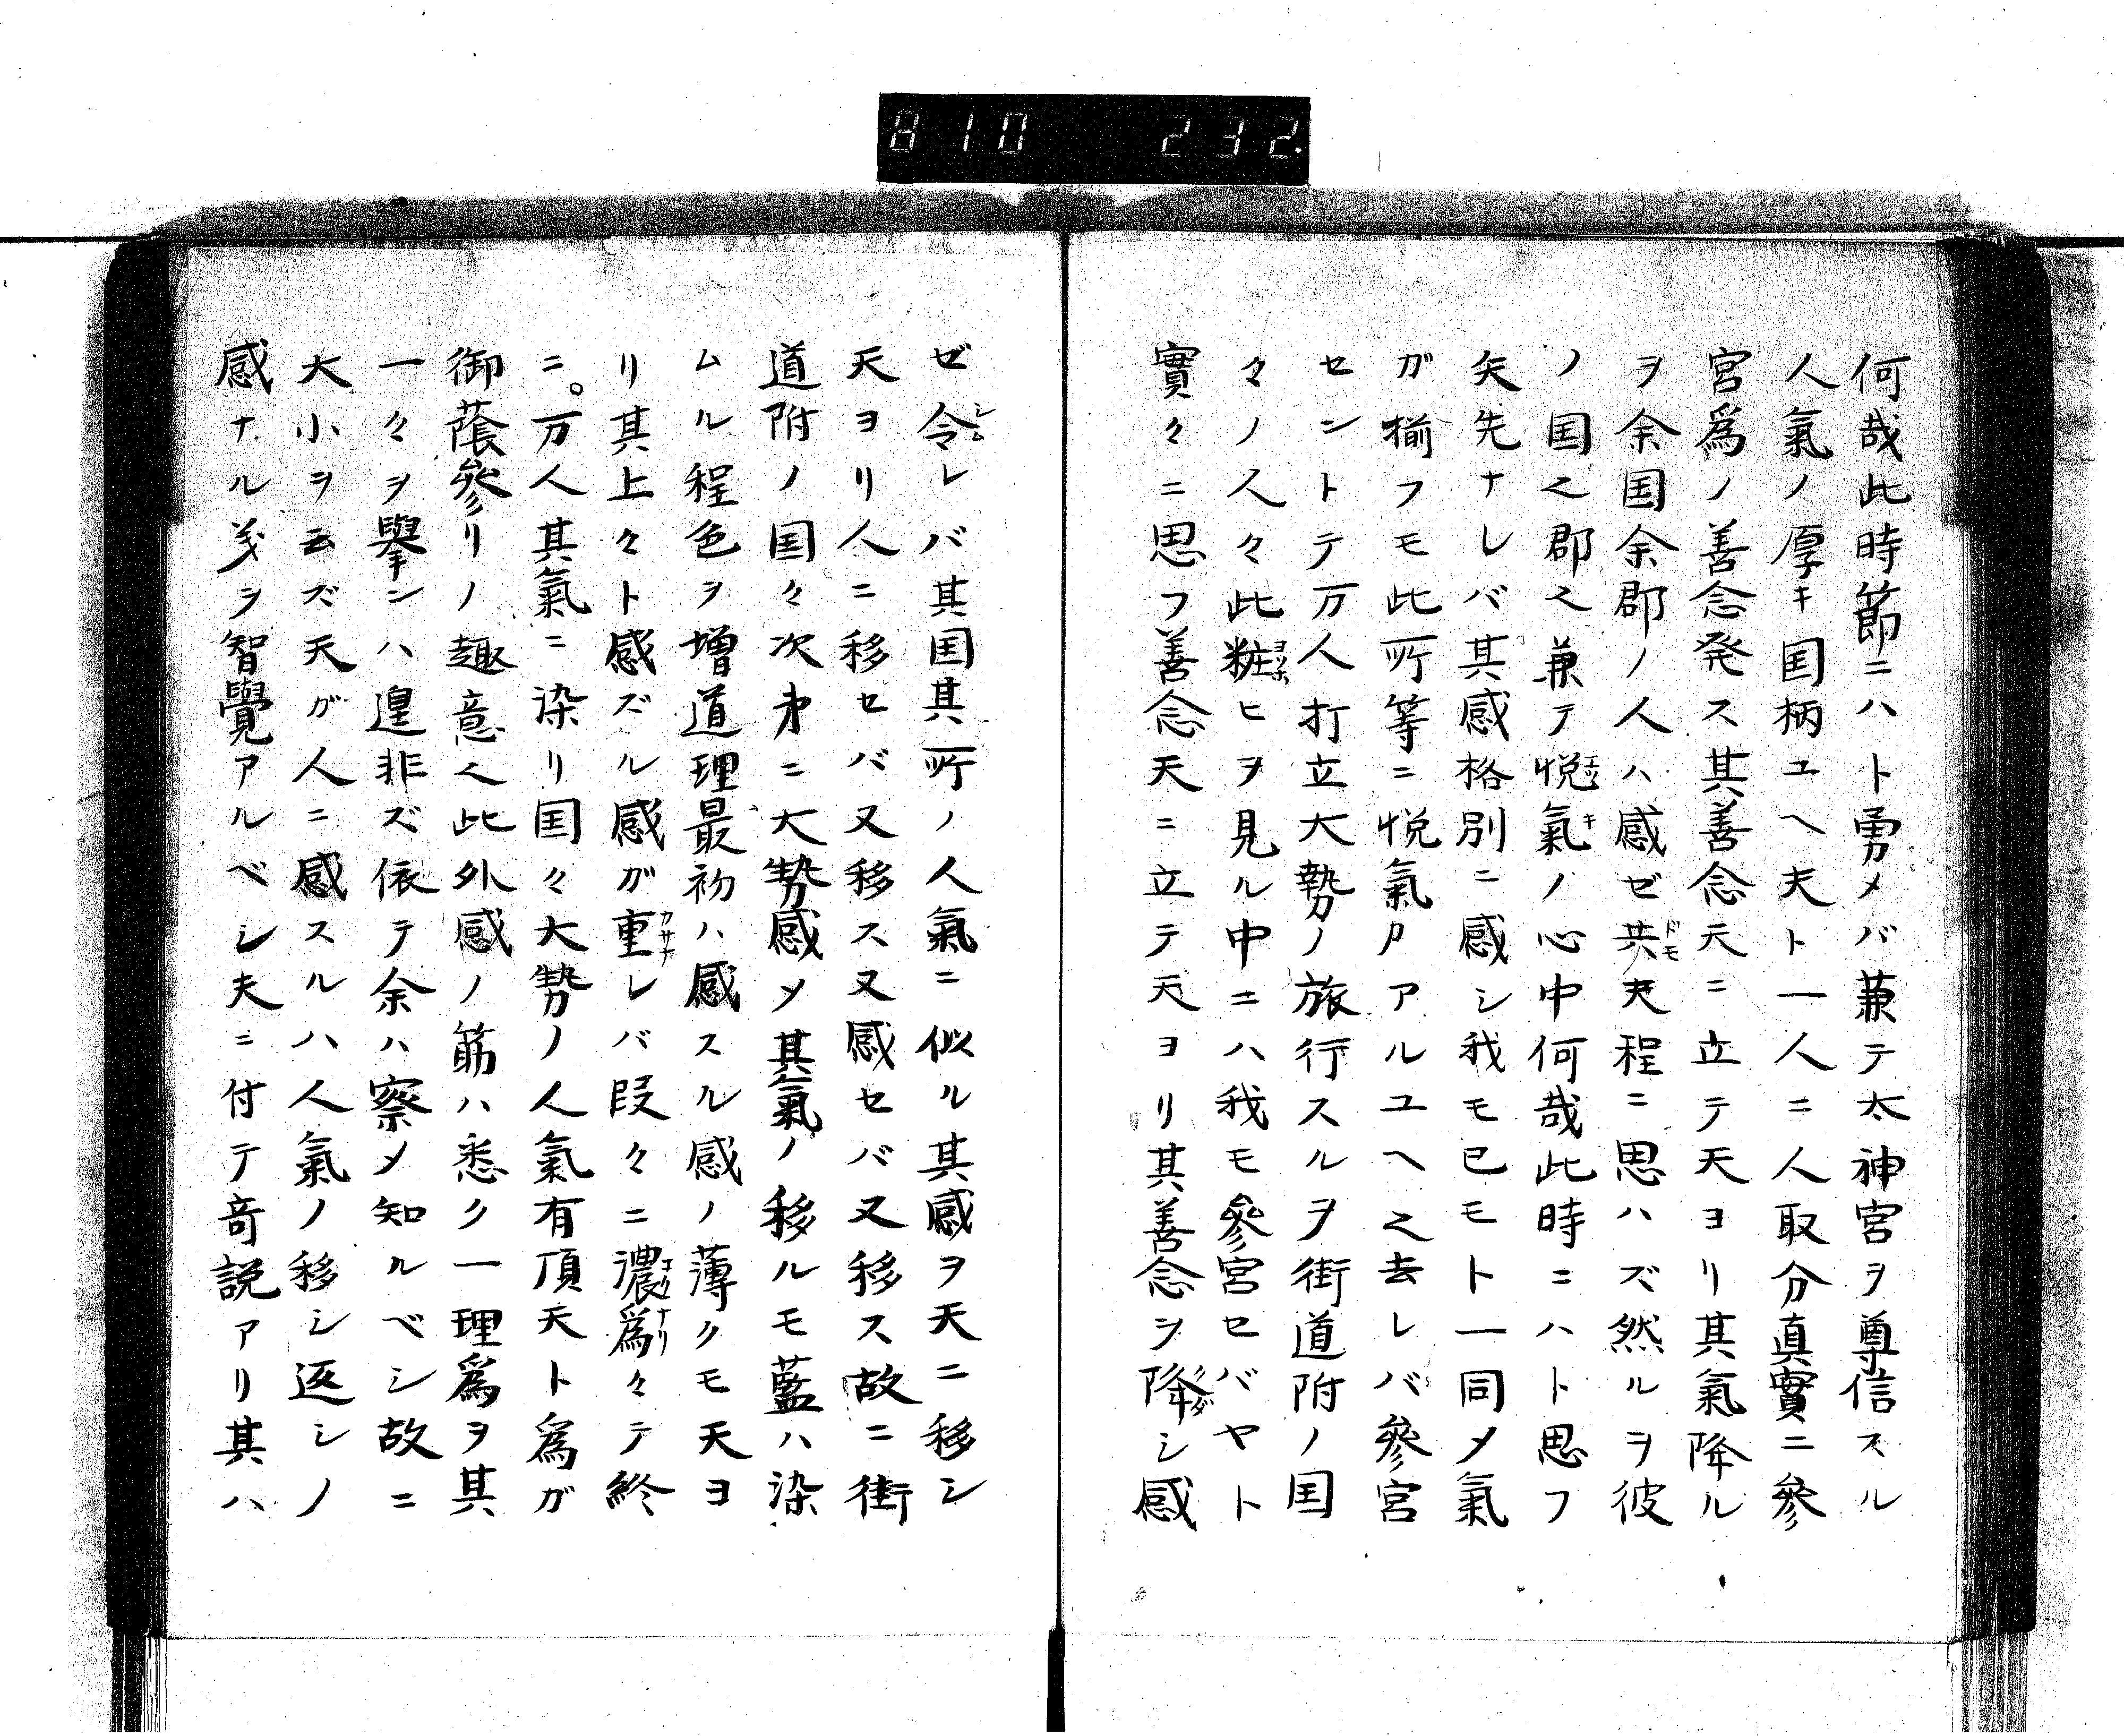 810 232.
何哉此時節ニハト勇メバ兼テ太神宮ヲ尊信スル
人氣ノ厚キ国柄ユヘ夫ト一人ニ人取分真實ニ參
宮爲ノ善念発ス其善念天ニ立テ天ヨリ其氣降ル
ヲ余国余郡ノ人ハ感ゼ共夫程ニ思ハズ然ルヲ彼
ノ国々郡々兼テ悦氣ノ心中何哉此時ニハト思フ
矢先ナレバ其感格別ニ感シ我モ已モト一同メ氣
ガ揃フモ此所等ニ悦氣アルユヘ々去レバ參宮
セントテ万人打立大勢ノ旅行スルヲ街道附ノ国
々ノ人々此粧ヒヲ見ル中ニハ我モ參宮セバヤト
實々ニ思フ善念天ニ立テ天ヨリ其善念ヲ降シ感
ゼ令レバ其国其所ノ人氣ニ似ル其感ヲ天ニ移シ
天ヨリ人ニ移セバ又移ス又感セバ又移ス故ニ街
道附ノ国々次オニ大勢感メ其氣ノ移ルモ藍ハ染
ムル程色ヲ增道理最初ハ感スル感ノ薄クモ天ヨ
リ其上々ト感ズル感ガ重レバ段々ニ濃爲々テ終
ニ。万人其氣ニ染リ国々大勢ノ人氣有頂天ト爲ガ
御蔭參リノ趣意々此外感ノ筋ハ悉ク一理爲ヲ其
一々ヲ擧ンハ遑非ズ依テ余ハ察メ知ルベシ故ニ
大小ヲ云ズ天ガ人ニ感スルハ人氣ノ移シ返シノ
感ナル義ヲ智覺アルベシ夫ニ付テ奇説アリ其ハ